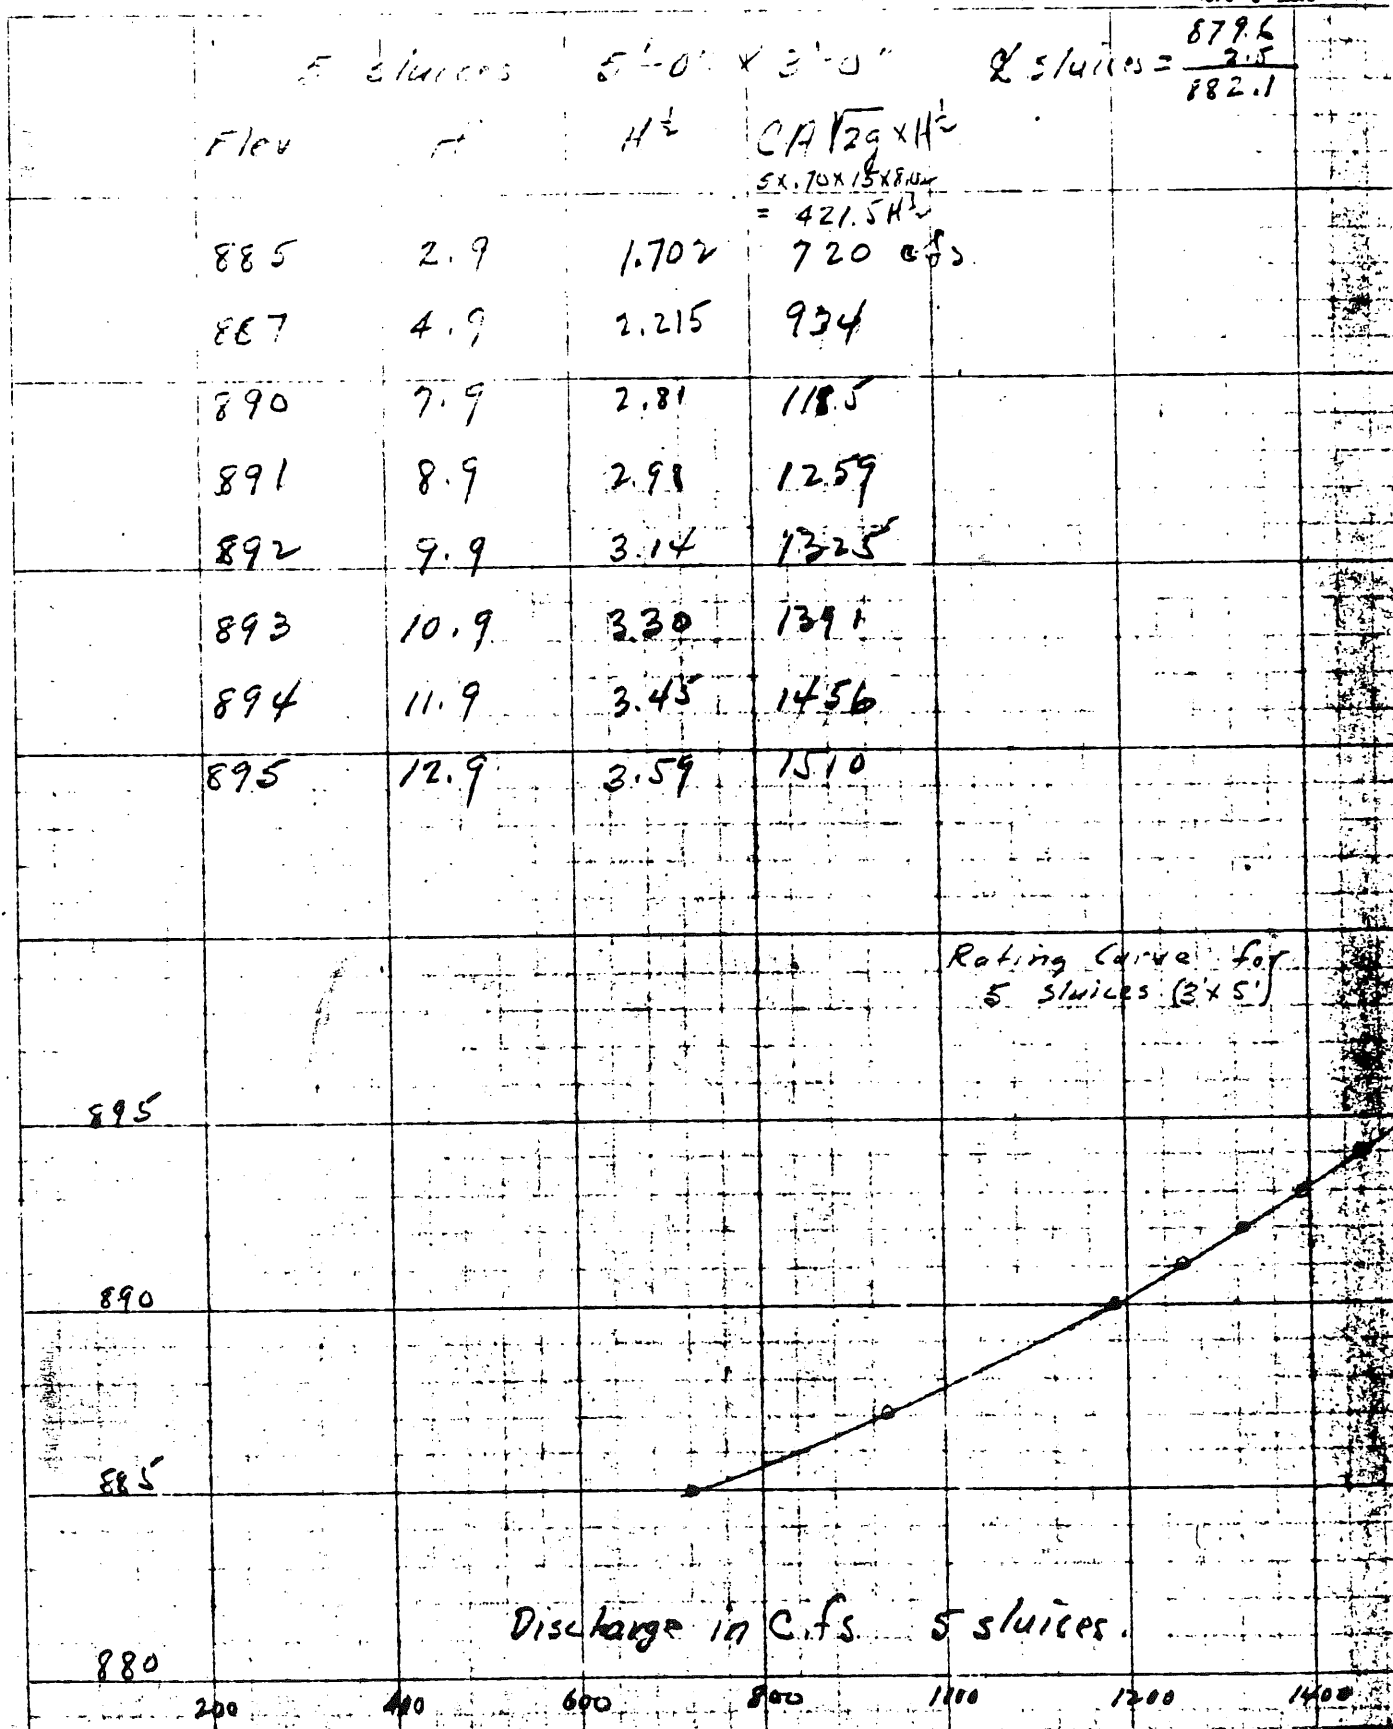 5 sluices 5'-0" x 3'-0" ℄ sluices = 879.6
2.5
882.1
Elev H H½ CA√2g x H½
5 x .70 x 15 x 8.02
= 421.5 H½
885 2.9 1.702 720 cfs
887 4.9 2.215 934
890 7.9 2.81 1185
891 8.9 2.98 1259
892 9.9 3.14 1325
893 10.9 3.30 1391
894 11.9 3.45 1456
895 12.9 3.59 1510
Rating Curve for
5 sluices (3'x5')
895
890
885
Discharge in C.f.s. 5 sluices.
880
200 400 600 800 1100 1200 1400